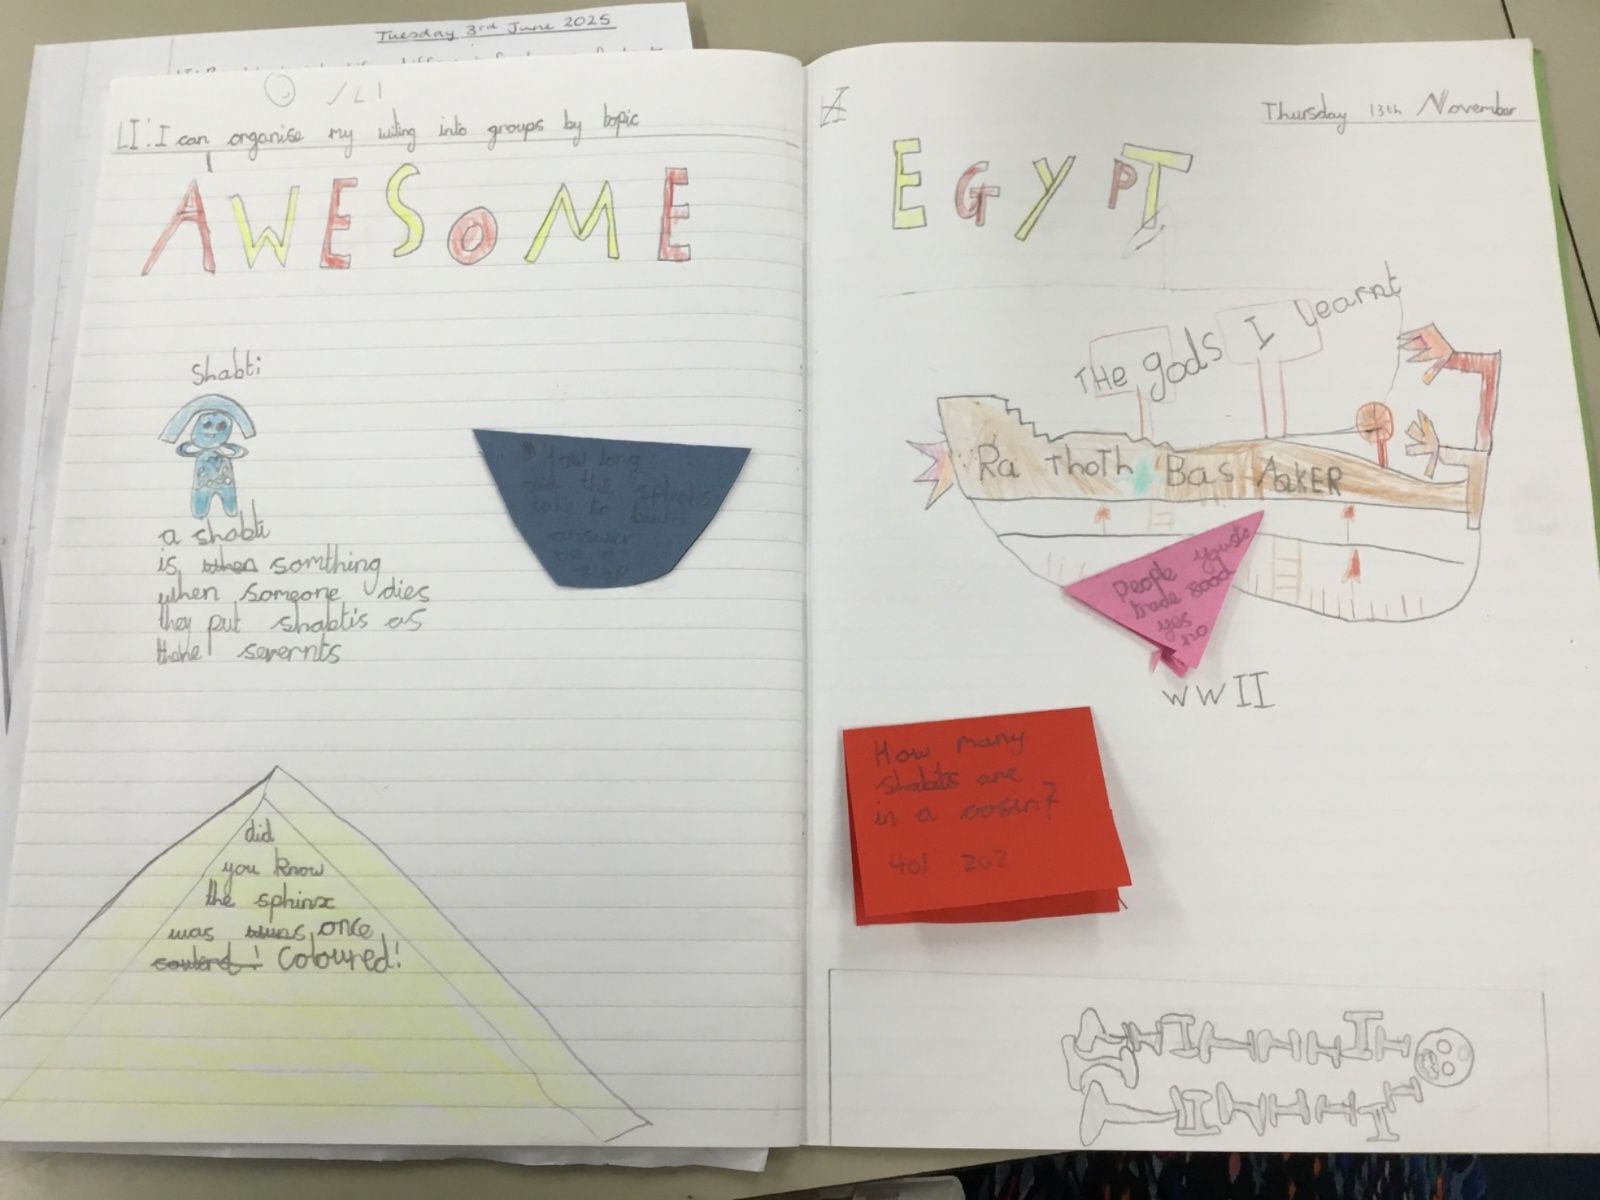 Tuesday 3rd June 2025
LI: I can organise my witing into groups by topic
AWESOME
Shabti
a shabti
is somthing
when someone dies
they put shabtis as
there severnts
How long
did the sphinks
take to build
answer
did
you know
the sphinx
was once
Coloured!
Thursday 13th November
EGYPT
THe gods I learnt
Ra Thoth Bas AaKER
People
trade good
yes
no
WWII
How many
shabits are
in a cosin?
401 202